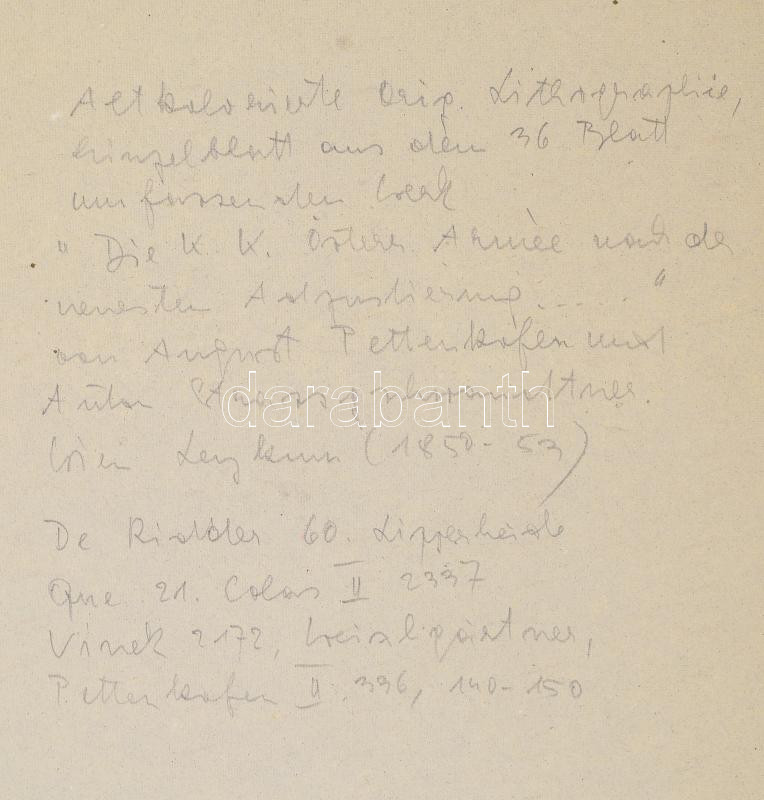 Altkolorierte Orig. Lithographie,
Einzelblatt aus dem 36 Blatt
umfassenden Werk
" Die K. K. Österr Armee nach der
neuesten Adjustierung . . . . . "
von August Pettenkofen und
Anton Strassgschwandtner.
darabanth
Wien (1850-53)
De Ridder 60. Lipperheide
Qne 21. Colas II 2337
Vinek 2172, Weixlgärtner,
Pettenkofen II 336, 140-150